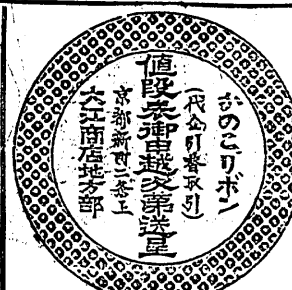 かのこリボン
(代金引替取引)
値段表御申越次第送呈
京都新町二条上
大江商店地方部